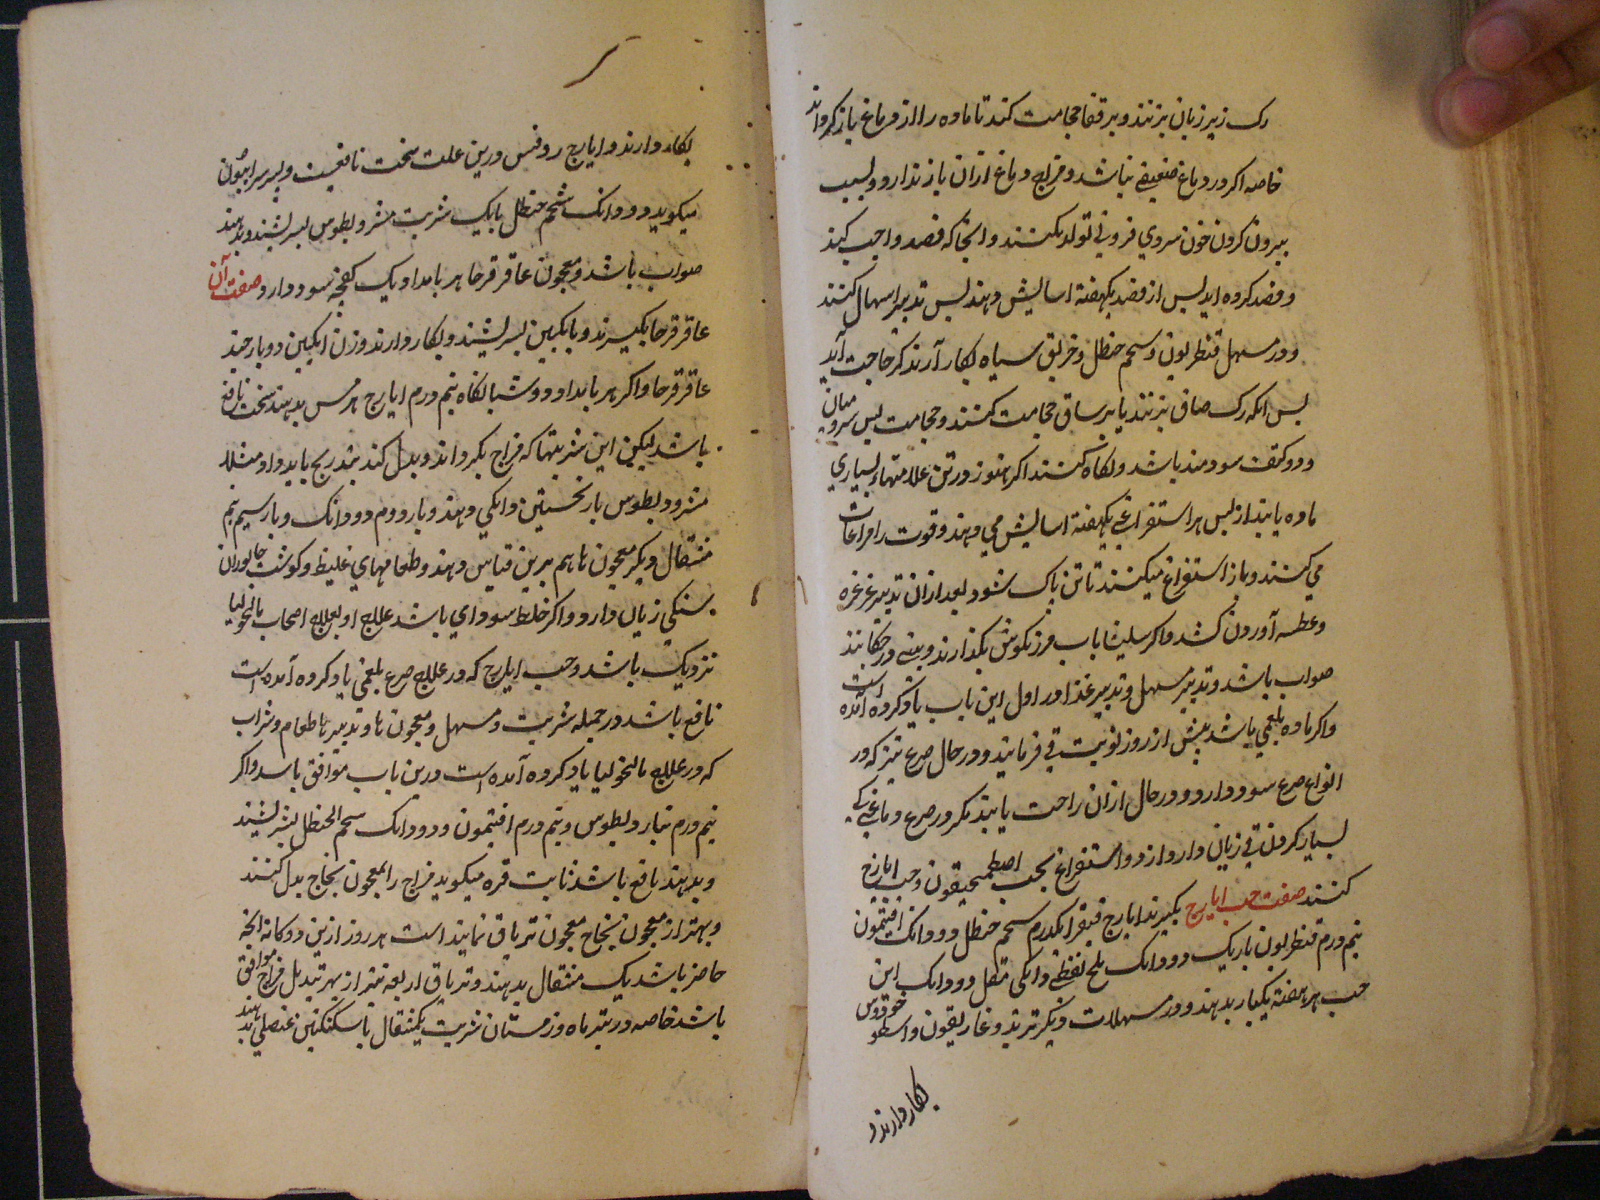 رک زیر زبان بزنند و بر قفا حجامت کنند تا ماده را از دماغ باز کرداند
خاصه اکر در دماغ ضعیفی نباشد و مزاج دماغ ازان باز ندارد و بسبب
بیرون کردن خون سردی فزونی تولد نکنند و انجا که فصد واجب کند
و فصد کرده اید پس از فصد یکهفته اسایش دهند پس تدبیر اسهال کنند
و در مسهل قنطریون و شحم حنظل و خربق سیاه بکار آرند کر حاجت آید
پس انکه رک صافن بزنند یا بر ساق حجامت کنند و حجامت پس سر و میان
دو کتف سودمند باشد و نکاه کنند اکر هنوز در تن علامتهاء بسیاری
ماده یابند از پس هر استفراغی یکهفته اسایش می دهند و قوت را مراعات
می کنند و باز استفراغ میکنند تا تن پاک شود بعد ازان تدبیر غرغره
و عطسه آوردن کنند و اکر سلیثا باب مرزنکوش بکذارند و ببینی در چکانند
صواب باشد و تدبیر مسهل و تدبیر غذا در اول این باب یاد کرده آمده است
و اکر ماده بلغمی باشد پیش از روز نوبت قی فرمایند و در حال صرع نیز که در
انواع صرع سود دارد و در حال ازان راحت یابند مکر در صرع دماغی کی
بسیار کردن قی زیان دارد و استفراغ بحب اصطمحیقون و حب ایارج
کنند صفت حب ایارج بکیرند ایارج فیقرا یکدرم شحم حنظل دو دانک افتیمون
نیم درم قنطریون باریک دو دانک ملح نفطی دانکی مقل دو دانک این
حب هر هفته یکبار بدهند و در مسهلات دیکر تربد و غاریقون و اسطوخودوس
بکار دارند و
بکار دارند و ایارج روفس درین علت سخت نافعست و پسر سرابیون
میکوید دو دانک شحم حنظل با یک شربت مثرودیطوس بسرشند و بدهند
صواب باشد و معجون عاقرقرحا هر بامداد یک کفچه سود دارد صفت آن
عاقرقرحا بکیرند و بانکبین بسرشند و بکار دارند وزن انکبین دو بار چند
عاقرقرحا و اکر هر بامداد و شبانکاه نیم درم ایارج هرمس بدهند سخت نافع
باشد لیکن این شربتها که مزاج بکرداند و بدل کند بتدریج باید داد مثلا
مثرودیطوس بار نخستین دانکی دهند و بار دوم دو دانک و بار سیم نیم
مثقال و دیکر معجون ها هم برین قیاس دهند و طعامهای غلیظ و کوشت جانوران
سنکی زیان دارد و اکر خلط سودای باشد علاج او بعلاج اصحاب مالخولیا
نزدیک باشد و حب ایارج که در علاج صرع بلغمی یاد کرده آمده است
نافع باشد در جمله شربت و مسهل و معجون ها و تدبیر ها طعام و شراب
که در علاج مالنخولیا یاد کرده آمده است درین باب موافق باشد و اکر
نیم درم تیادریطوس و نیم درم افتیمون و دو دانک شحم الحنظل بسرشند
و بدهند نافع باشد ثابت قره میکوید مزاج را بمعجون نجاح بدل کنند
و بهتر از معجون نجاح معجون تریاق نمایند است هر روز ازین دوکانه انچه
حاضر باشد یک مثقال بدهند و تریاق اربعه نیز از بهر تبدیل مزاج موافق
باشد خاصه در تیر ماه و زمستان شربت یکمثقال با سکنکبین عنصلی بدهند